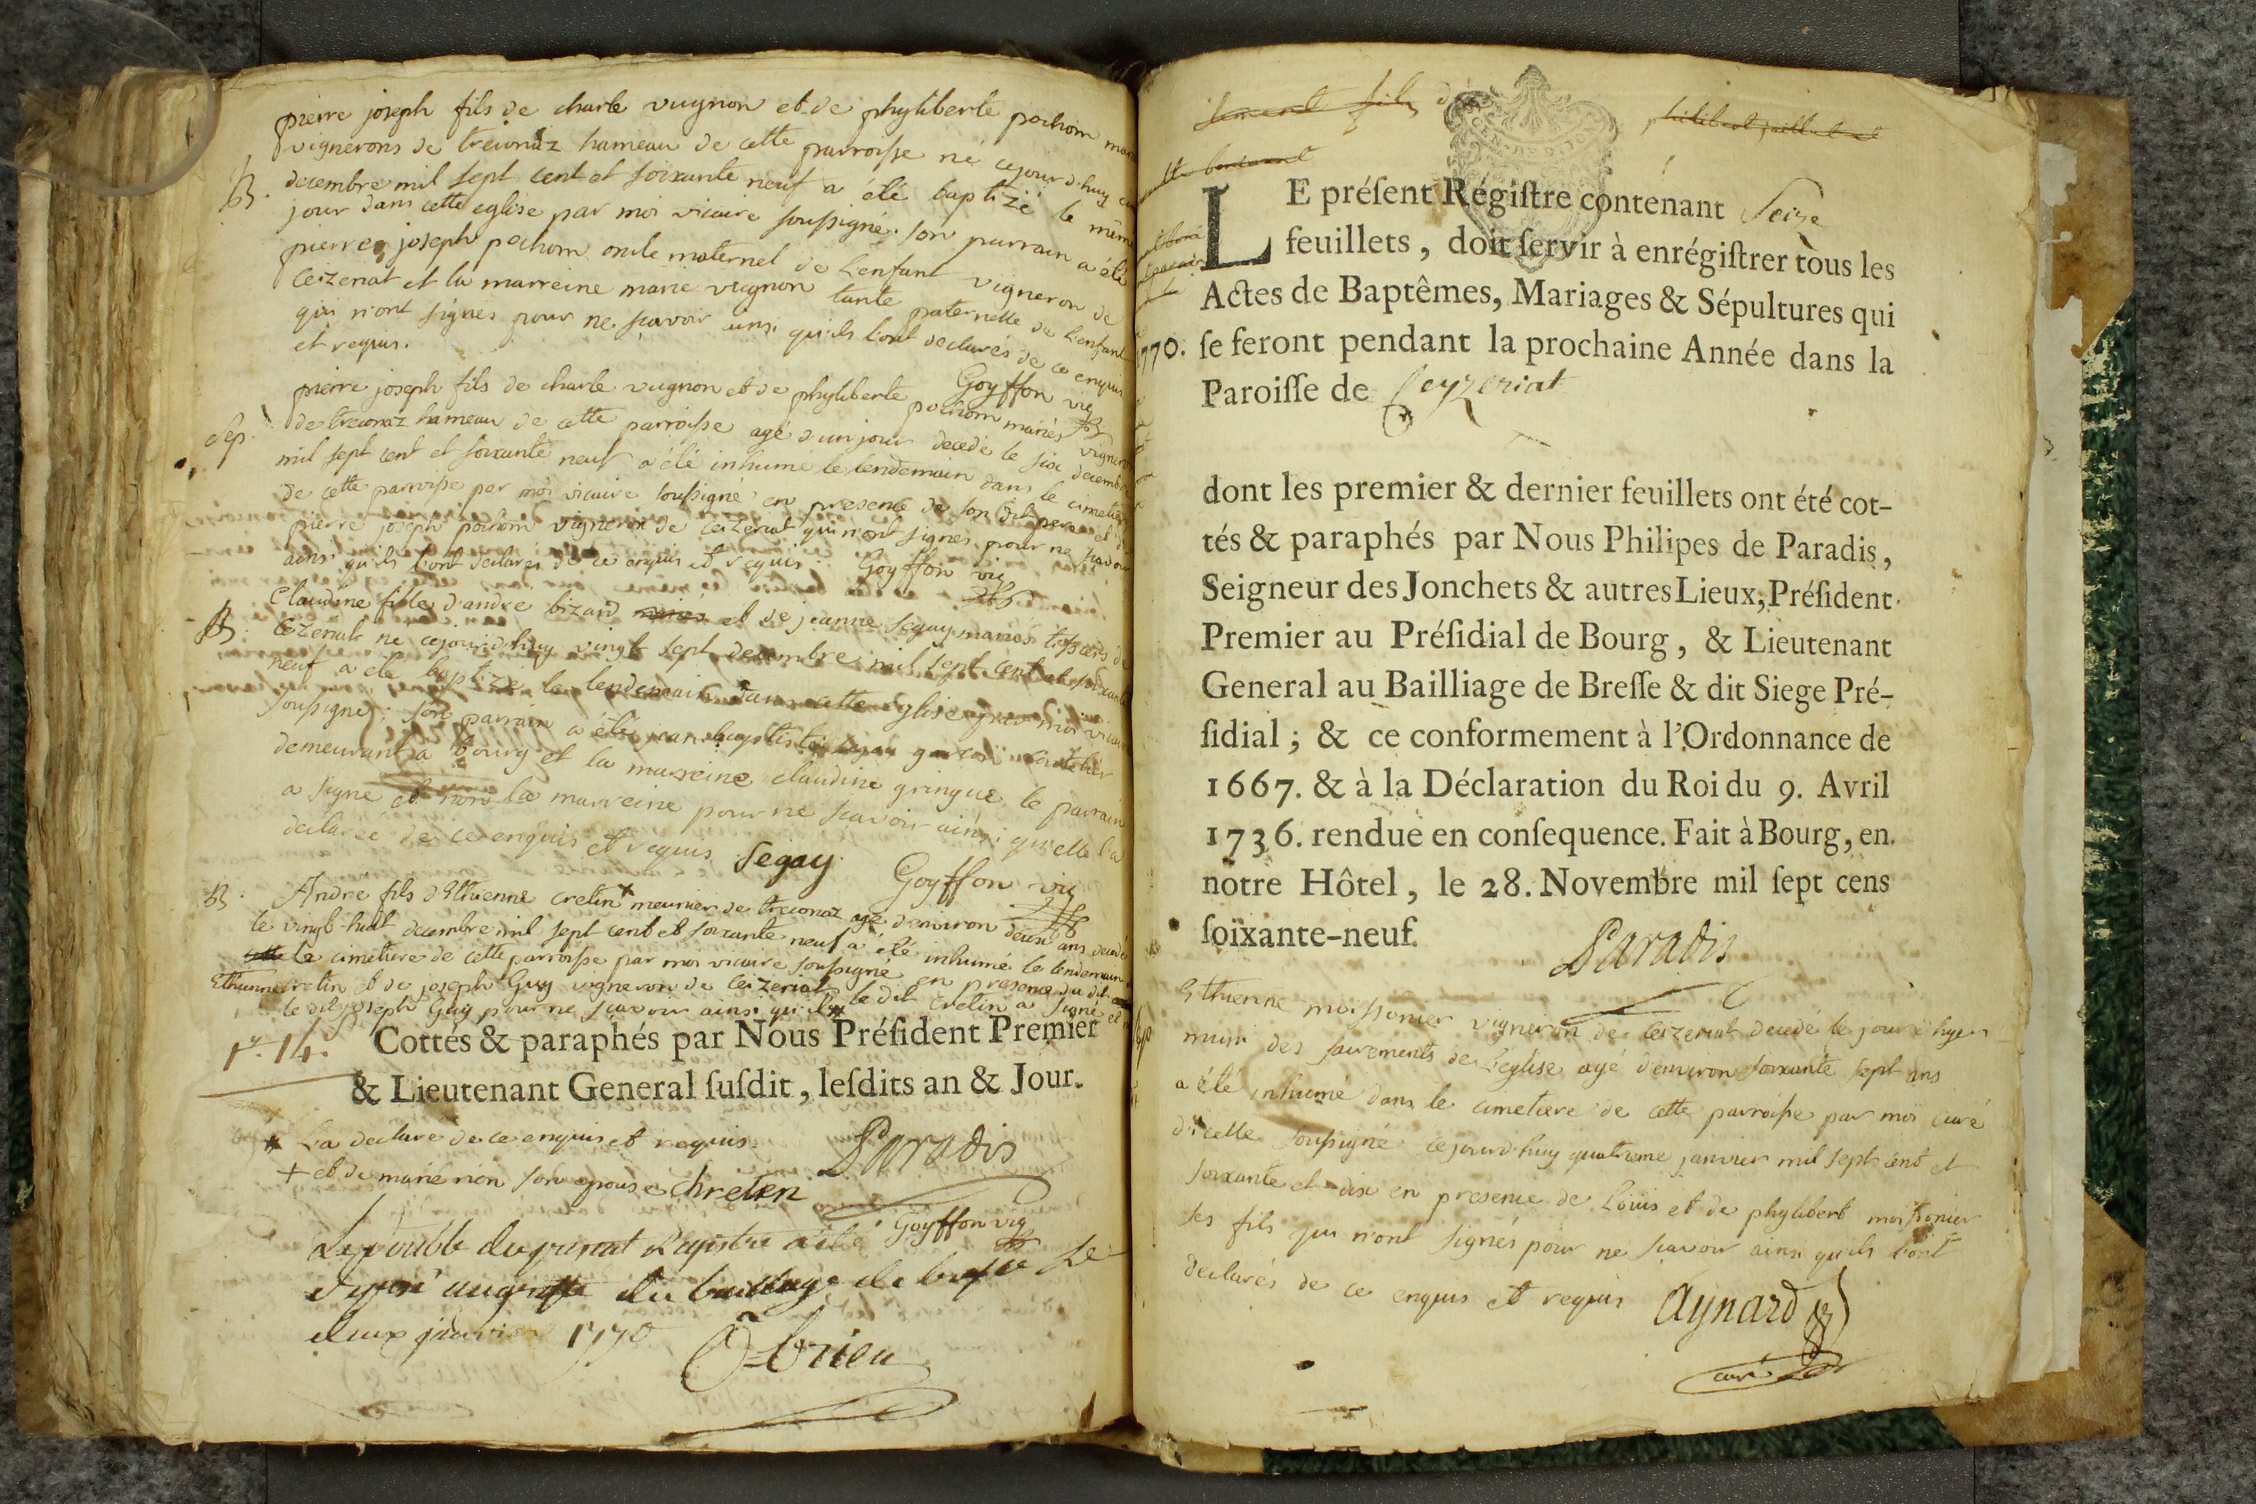 pierre joseph fils de charle vugnon et de phyliberte pochom
vignerons de treconaz hameau de cette parroisse né cejourd'huy
B. decembre mil sept cent et soixante neuf a été baptizé le même
jour dans cette eglise par moi vicaire soussigné. son parrain a été
pierre joseph pochom oncle maternel de l'enfant vigneron de
Ceizeriat et la marreine marie vugnon tante paternelle de l'enfant
qui n'ont signés pour ne scavoir ainsi qu'ils l'ont declarés de ce enquis
et requis. Goyffon vic
pierre joseph fils de charle vugnon et de phyliberte pochom mariés vignerons
sep. de treconaz hameau de cette parroisse agé d'un jour decedé le six decembre
mil sept cent et soixante neuf a été inhumé le lendemain dans le cimetiere
de cette parroisse par moi vicaire soussigné en presence de son dit pere et de
pierre joseph pochom vigneron de Ceizeriat qui n'ont signés pour ne scavoir
ainsi qu'ils l'ont declarés de ce enquis et requis. Goyffon vic
Claudine fille d'andré bizard et de jeanne segay mariés tissiers de
B. Ceizeriat né cejourd'huy vingt sept decembre mil sept cent et soixante
neuf a été baptizé le lendemain dans cette eglise par moi vicaire
soussigné. son parrain a été jean baptiste segay garçon
demeurant à bourg et la marreine claudine gringue le parrain
a signé et non la marreine pour ne scavoir ainsi qu'elle l'a
declarée de ce enquis et requis Segay Goyffon vic
B. Andre fils d'Ethienne cretin + meunier de treconaz agé d'environ deux ans decedé
le vingt huit decembre mil sept cent et soixante neuf a été inhumé le lendemain
le cimetiere de cette parroisse par moi vicaire soussigné en presence du dit
Ethienne cretin et de joseph Guy vigneron de Ceizeriat le dit Cretin a signé et
le dit joseph Guy pour ne scavoir ainsi qu'il
14. Cottés & paraphés par Nous Préſident Premier
& Lieutenant General ſuſdit, leſdits an & Jour.
* L'a declare de ce enquis et requis Paradis
+ et de marie son epouse Chreten
Goyffon vic
Le double du present Registre a été
du bailliage de bresse le
deux janvier 1770 Obrien
Seize
LE préſent Régiſtre contenant
feuillets, doit ſervir à enrégiſtrer tous les
Actes de Baptêmes, Mariages & Sépultures qui
1770. ſe feront pendant la prochaine Année dans la
Paroiſſe de Ceyzeriat
dont les premier & dernier feuillets ont été cot-
tés & paraphés par Nous Philipes de Paradis,
Seigneur des Jonchets & autres Lieux, Préſident
Premier au Préſidial de Bourg, & Lieutenant
General au Bailliage de Breſſe & dit Siege Pré-
ſidial; & ce conformement à l'Ordonnance de
1667. & à la Déclaration du Roi du 9. Avril
1736. renduë en conſequence. Fait à Bourg, en
notre Hôtel, le 28. Novembre mil ſept cens
ſoixante-neuf.
Paradis
Ethienne moissonier vigneron de Ceizeriat decedé le jour d'hyer
muni des sacrements de l'eglise agé d'environ soixante sept ans
a été inhumé dans le cimetiere de cette parroisse par moi curé
d'icelle soussigné cejourd'huy quatrieme janvier mil sept cent et
soixante et dix en presence de Louis et de phylibert moissonier
ses fils qui n'ont signés pour ne scavoir ainsi qu'ils l'ont
declarés de ce enquis et requis Aynard
curé